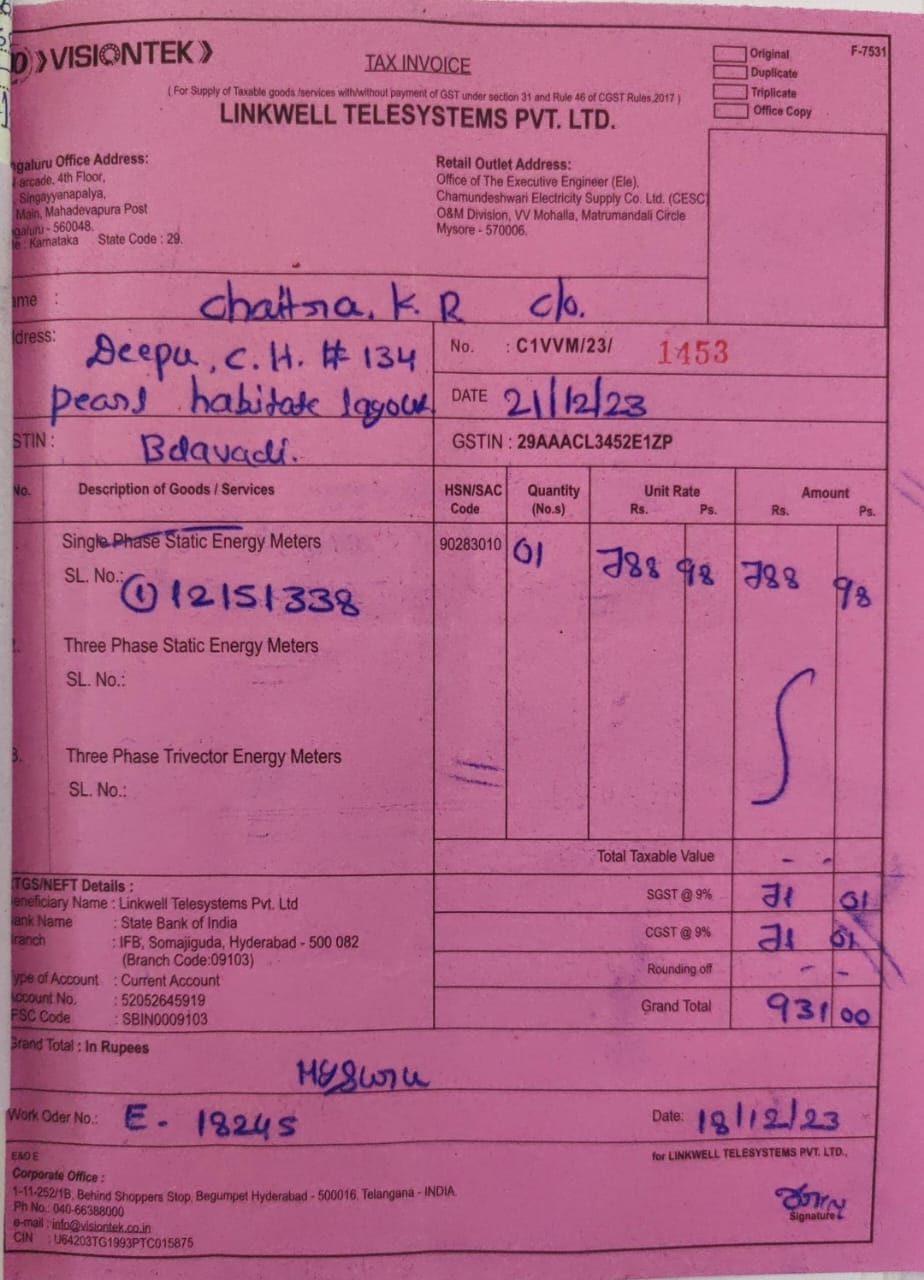 VISIONTEK
TAX INVOICE
Original
Duplicate
Triplicate
Office Copy
F-7531
( For Supply of Taxable goods /services with/without payment of GST under section 31 and Rule 46 of CGST Rules,2017 )
LINKWELL TELESYSTEMS PVT. LTD.
galuru Office Address:
arcade, 4th Floor,
Singayyanapalya,
Main, Mahadevapura Post
galuru - 560048.
e : Karnataka State Code : 29.
Retail Outlet Address:
Office of The Executive Engineer (Ele).
Chamundeshwari Electricity Supply Co. Ltd. (CESC)
O&M Division, VV Mohalla, Matrumandali Circle
Mysore - 570006.
ame : Chaitra. K. R c/o.
dress: Deepu. C. H. # 134
pearl habitate layout
No. : C1VVM/23/ 1453
DATE 21/12/23
STIN : Belavadi.
GSTIN : 29AAACL3452E1ZP
No. Description of Goods / Services HSN/SAC Code Quantity (No.s) Unit Rate Rs. Ps. Amount Rs. Ps.
Single Phase Static Energy Meters 90283010 01 788 98 788 98
SL. No.: ① 12151338
Three Phase Static Energy Meters
SL. No.:
3. Three Phase Trivector Energy Meters
SL. No.:
Total Taxable Value - -
TGS/NEFT Details :
eneficiary Name : Linkwell Telesystems Pvt. Ltd
ank Name : State Bank of India
ranch : IFB, Somajiguda, Hyderabad - 500 082
(Branch Code:09103)
ype of Account : Current Account
ccount No. : 52052645919
FSC Code : SBIN0009103
SGST @ 9% 71 01
CGST @ 9% 71 01
Rounding off - -
Grand Total 931 00
Grand Total : In Rupees
Mysuru
Work Oder No.: E - 18245
Date: 18/12/23
E&O E
Corporate Office :
1-11-252/1B, Behind Shoppers Stop, Begumpet Hyderabad - 500016, Telangana - INDIA.
Ph No.: 040-66388000
e-mail : info@visiontek.co.in
CIN : U64203TG1993PTC015875
for LINKWELL TELESYSTEMS PVT. LTD.,
Signature